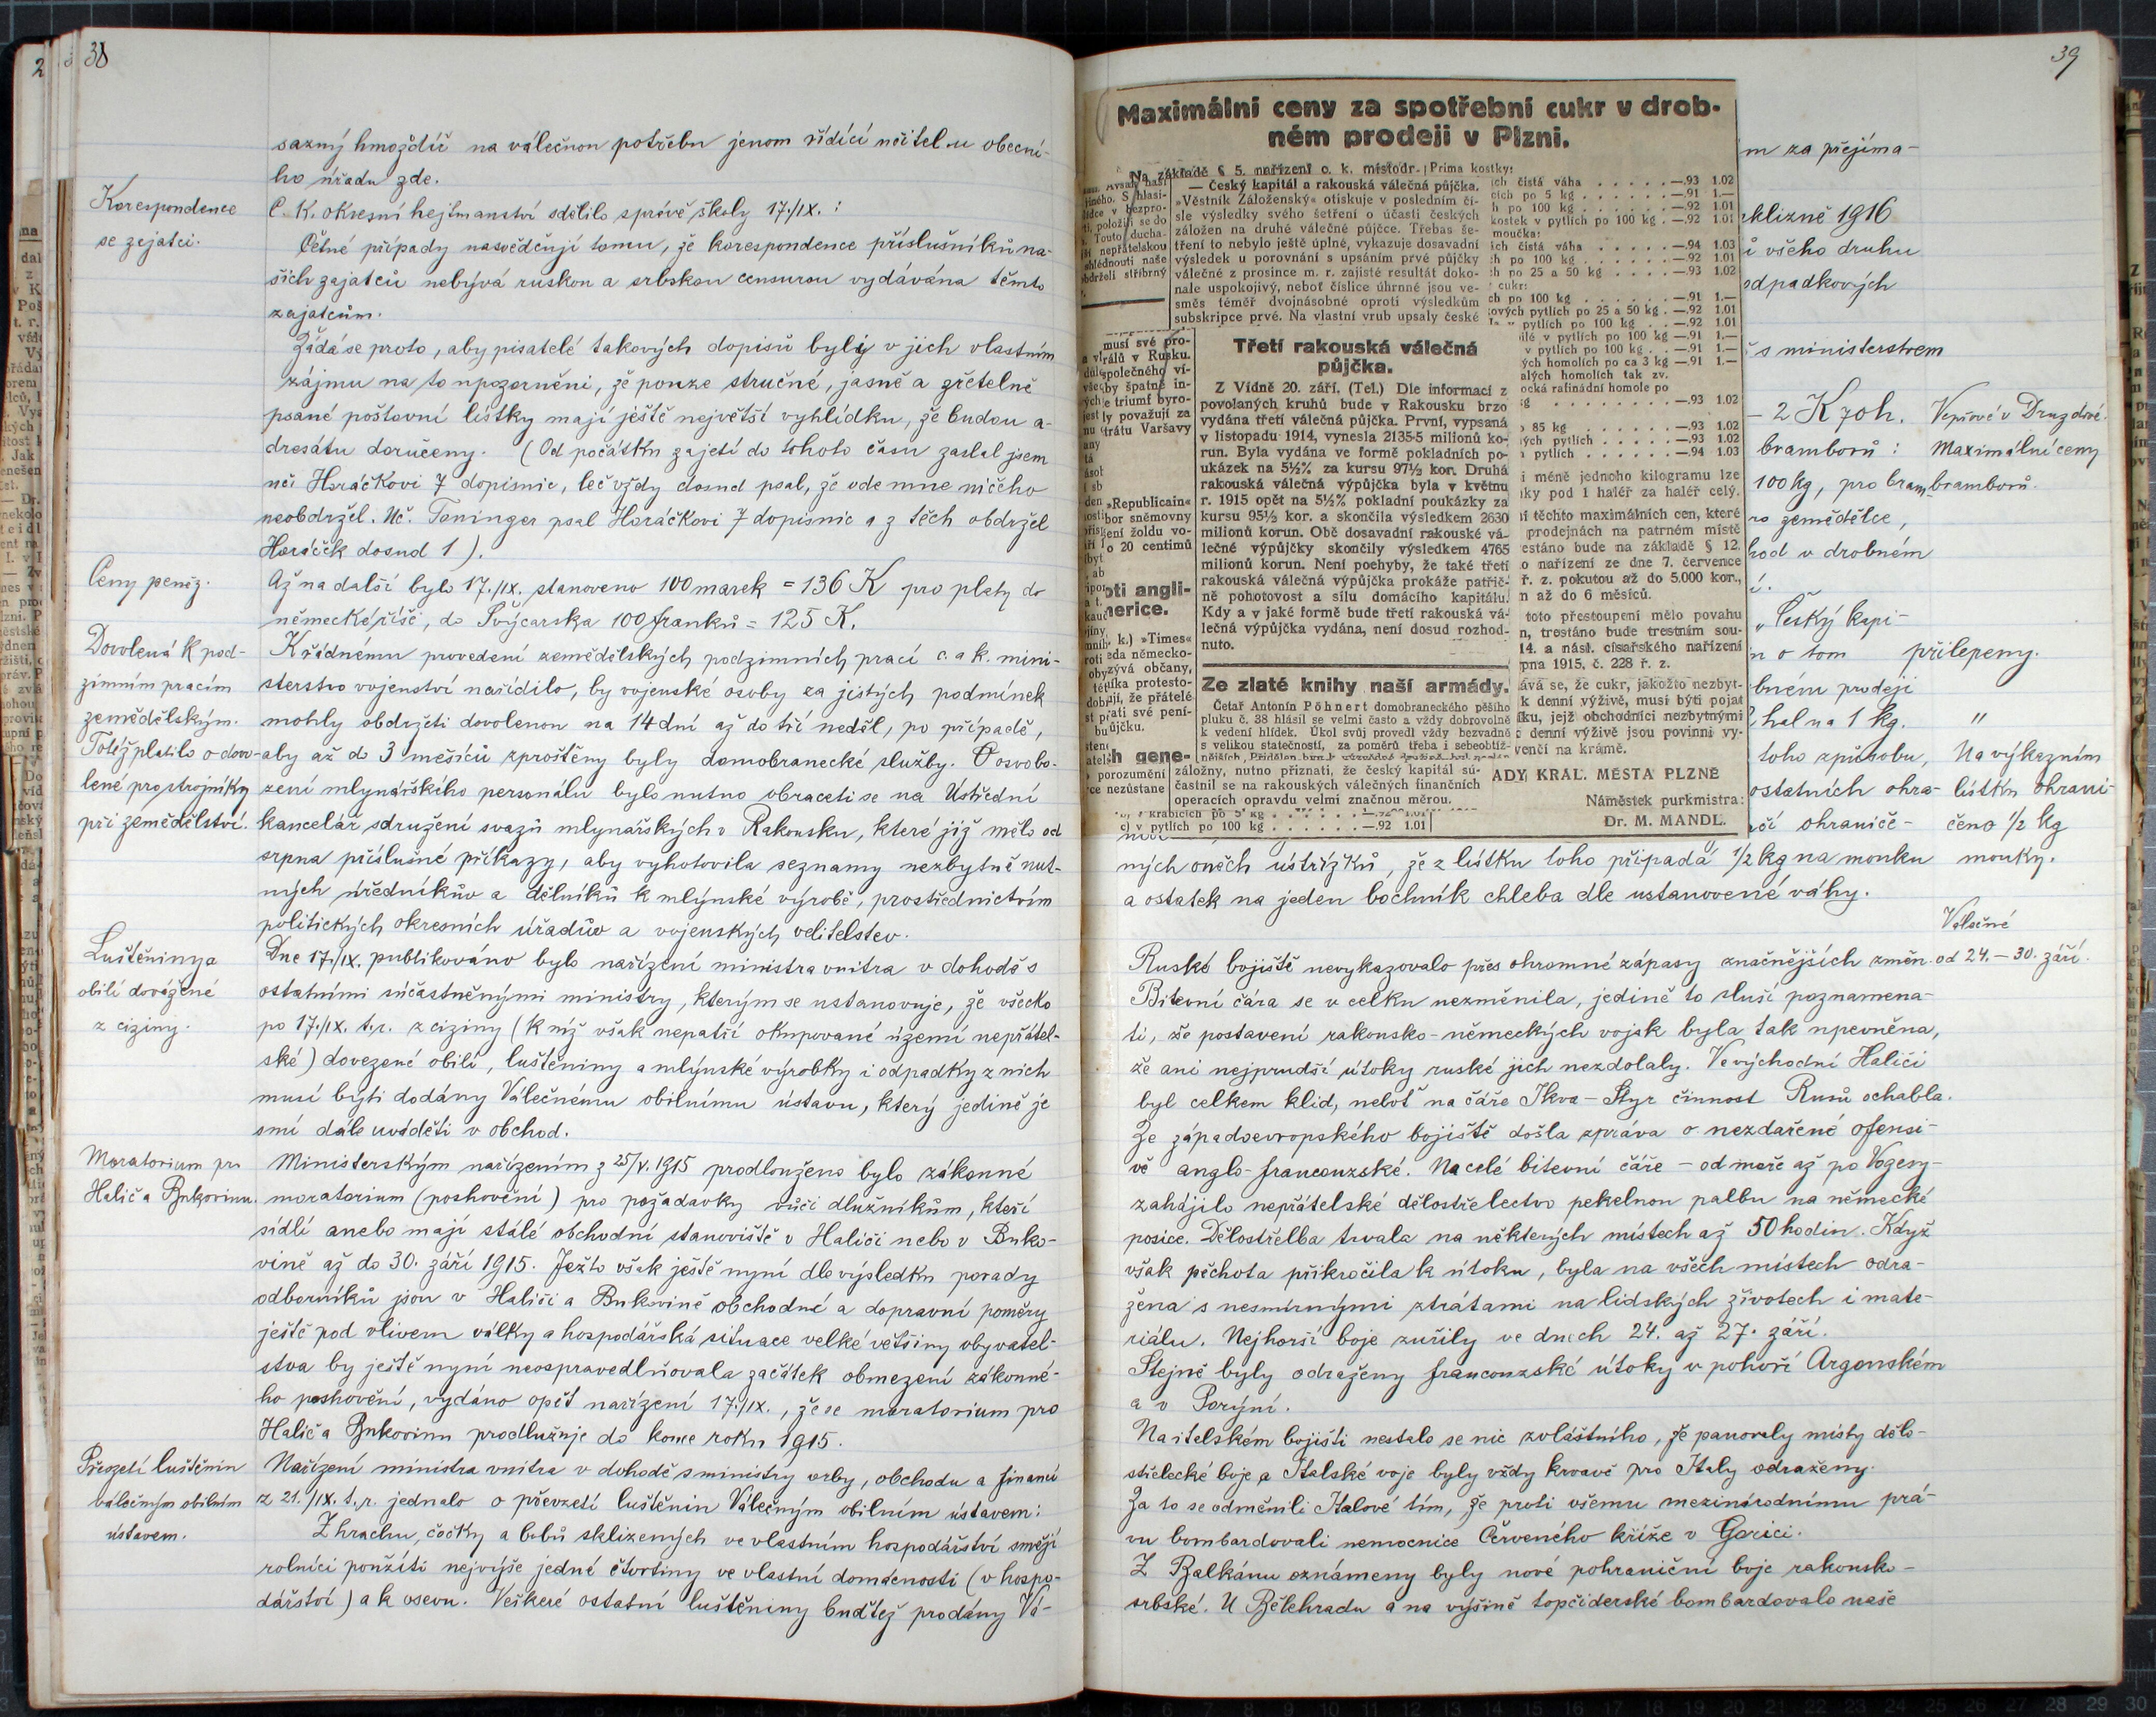 38
sazný hmoždíř na válečnou potřebu jenom řídící učitel u obecní-
ho úřadu zde.
Korespondence
se zajatci.
C. K. okresní hejtmanství sdělilo správě školy 17./IX. :
Četné případy nasvědčují tomu, že korespondence příslušníků na-
šich zajatců nebývá ruskou a srbskou censurou vydávána těmto
zajatcům.
Žádá se proto, aby pisatelé takových dopisů byli v jich vlastním
zájmu na to upozorněni, že pouze stručné, jasně a zřetelně
psané poštovní lístky mají ještě největší vyhlídku, že budou a-
dresátu doručeny. (Od počátku zajetí do tohoto času zaslal jsem
uči Horáčkovi 7 dopisnic, leč vždy dosud psal, že ode mne ničeho
neobdržel. Uč. Toninger psal Horáčkovi 7 dopisnic a z těch obdržel
Horáček dosud 1).
Ceny peněz.
Až na další bylo 17./IX. stanoveno 100 marek = 136 K pro platy do
německé říše, do Švýcarska 100 franků = 125 K.
Dovolená k pod-
zimním pracím
zemědělským.
Totéž platilo o dovo-
lené pro strojníky
při zemědělství.
K řádnému provedení zemědělských podzimních prací c. a k. mini-
sterstvo vojenství nařídilo, by vojenské osoby za jistých podmínek
mohly obdržeti dovolenou na 14 dní až do tří neděl, po případě,
aby až do 3 měsíců zproštěny byly domobranecké služby. O osvobo-
zení mlynářského personálu bylo nutno obraceti se na Ústřední
kancelář sdružení svazů mlynářských v Rakousku, které již mělo od
srpna příslušné příkazy, aby vyhotovila seznamy nezbytně nut-
ných úředníkův a dělníků k mlýnské výrobě, prostřednictvím
politických okresních úřadův a vojenských velitelstev.
Luštěniny a
obilí dovážené
z ciziny.
Dne 17./IX. publikováno bylo nařízení ministra vnitra v dohodě s
ostatními súčastněnými ministry, kterým se ustanovuje, že všecko
po 17./IX. t.r. z ciziny (k níž však nepatří okupované území nepřátel-
ské) dovezené obilí, luštěniny a mlýnské výrobky i odpadky z nich
musí býti dodány Válečnému obilnímu ústavu, který jedině je
smí dále uváděti v obchod.
Moratorium pro
Halič a Bukovinu.
Ministerským nařízením z 25/V. 1915 prodlouženo bylo zákonné
moratorium (poshovění) pro požadavky vůči dlužníkům, kteří
sídlí anebo mají stálé obchodní stanoviště v Haliči nebo v Buko-
vině až do 30. září 1915. Ježto však ještě nyní dle výsledku porady
odborníků jsou v Haliči a Bukovině obchodné a dopravní poměry
ještě pod vlivem války a hospodářská situace velké většiny obyvatel-
stva by ještě nyní neospravedlňovala začátek obmezení zákonné-
ho poshovění, vydáno opět nařízení 17./IX., že se moratorium pro
Halič a Bukovinu prodlužuje do konce roku 1915.
Převzetí luštěnin
válečným obilním
ústavem.
Nařízení ministra vnitra v dohodě s ministry orby, obchodu a financí
z 21./IX. t.r. jednalo o převzetí luštěnin Válečným obilním ústavem:
Z hrachu, čočky a bobů sklizených ve vlastním hospodářství smějí
rolníci použíti nejvýše jedné čtvrtiny ve vlastní domácnosti (v hospo-
dářství) a k osevu. Veškeré ostatní luštěniny buďtež prodány Vá-
39
Maximální ceny za spotřební cukr v drob-
ném prodeji v Plzni.
Na základě § 5. nařízení c. k. místodr-
— Český kapitál a rakouská válečná půjčka.
»Věstník Záloženský« otiskuje v posledním čí-
sle výsledky svého šetření o účasti českých
záložen na druhé válečné půjčce. Třebas še-
tření to nebylo ještě úplné, vykazuje dosavadní
výsledek u porovnání s upsáním prvé půjčky
válečné z prosince m. r. zajisté resultát doko-
nale uspokojivý, neboť číslice úhrnné jsou ve-
směs téměř dvojnásobné oproti výsledkům
subskripce prvé. Na vlastní vrub upsaly české
Třetí rakouská válečná
půjčka.
Z Vídně 20. září. (Tel.) Dle informací z
povolaných kruhů bude v Rakousku brzo
vydána třetí válečná půjčka. První, vypsaná
v listopadu 1914, vynesla 2135·5 milionů ko-
run. Byla vydána ve formě pokladních po-
ukázek na 5½% za kursu 97½ kor. Druhá
rakouská válečná výpůjčka byla v květnu
r. 1915 opět na 5½% pokladní poukázky za
kursu 95½ kor. a skončila výsledkem 2630
milionů korun. Obě dosavadní rakouské vá-
lečné výpůjčky skončily výsledkem 4765
milionů korun. Není pochyby, že také třetí
rakouská válečná výpůjčka prokáže patřič-
ně pohotovost a sílu domácího kapitálu.
Kdy a v jaké formě bude třetí rakouská vá-
lečná výpůjčka vydána, není dosud rozhod-
nuto.
Ze zlaté knihy naší armády.
Četař Antonín Pöhnert domobraneckého pěšího
pluku č. 38 hlásil se velmi často a vždy dobrovolně
k vedení hlídek. Úkol svůj provedl vždy bezvadně
s velikou statečností, za poměrů třeba i sebeobtíž-
záložny, nutno přiznati, že český kapitál sú-
častnil se na rakouských válečných finančních
operacích opravdu velmi značnou měrou.
c) v pytlích po 100 kg . . . . . . —.92 1.01
Prima kostky:
čistá váha . . . . . —.93 1.02
po 5 kg . . . . . —.91 1.—
po 100 kg . . . . . —.92 1.01
kostek v pytlích po 100 kg . —.92 1.01
moučka:
čistá váha . . . . . —.94 1.03
po 100 kg . . . . . —.92 1.01
po 25 a 50 kg . . . . —.93 1.02
cukr:
po 100 kg . . . . . —.91 1.—
pytlích po 25 a 50 kg . —.92 1.01
pytlích po 100 kg . . —.92 1.01
v pytlích po 100 kg —.91 1.—
v pytlích po 100 kg . . —.91 1.—
homolích po ca 3 kg —.91 1.—
homolích tak zv.
rafinádní homole po
—.93 1.02
85 kg . . . . . —.93 1.02
pytlích . . . . . —.93 1.02
pytlích . . . . . —.94 1.03
méně jednoho kilogramu lze
pod 1 haléř za haléř celý.
těchto maximálních cen, které
prodejnách na patrném místě
bude na základě § 12.
nařízení ze dne 7. července
ř. z. pokutou až do 5.000 kor.,
až do 6 měsíců.
toto přestoupení mělo povahu
trestáno bude trestním sou-
14. a násl. císařského nařízení
1915, č. 228 ř. z.
se, že cukr, jakožto nezbyt-
k denní výživě, musí býti pojat
jejž obchodníci nezbytnými
denní výživě jsou povinni vy-
na krámě.
KRÁL. MĚSTA PLZNĚ
Náměstek purkmistra:
Dr. M. MANDL.
za přejíma-
sklizně 1916
všeho druhu
odpadkových
s ministerstvem
2 K
bramborů :
100 kg, pro bram-
zemědělce,
v drobném
„Český kapi-
o tom
prodeji
hal na 1 kg.
toho způsobu,
ostatních ohra-
ohranič-
Maximální ceny
bramborů.
přilepeny.
"
Na výkazním
lístku ohrani-
čeno 1/2 kg
mouky.
ných oněch ústřižků, že z lístku toho připadá 1/2 kg na mouku
a ostatek na jeden bochník chleba dle ustanovené váhy.
Válečné
od 24. — 30. září.
Ruské bojiště nevykazovalo přes ohromné zápasy značnějších změn.
Bitevní čára se v celku nezměnila, jedině to sluší poznamena-
ti, že postavení rakousko-německých vojsk byla tak upevněna,
že ani nejprudší útoky ruské jich nezdolaly. Ve východní Haliči
byl celkem klid, neboť na čáře Ikva – Styr činnost Rusů ochabla.
Ze západoevropského bojiště došla zpráva o nezdařené ofensi-
vě anglo-francouzské. Na celé bitevní čáře – od moře až po Vogesy –
zahájilo nepřátelské dělostřelectvo pekelnou palbu na německé
posice. Dělostřelba trvala na některých místech až 50 hodin. Když
však pěchota přikročila k útoku, byla na všech místech odra-
žena s nesmírnými ztrátami na lidských životech i mate-
riálu. Nejhorší boje zuřily ve dnech 24. až 27. září.
Stejně byly odraženy francouzské útoky v pohoří Argonském
a v Porýní.
Na italském bojišti nestalo se nic zvláštního, že panovaly místy dělo-
střelecké boje a Italské voje byly vždy krvavě pro Italy odraženy.
Za to se odměnili Italové tím, že proti všemu mezinárodnímu prá-
vu bombardovali nemocnice Červeného kříže v Gorici.
Z Balkánu oznámeny byly nové pohraniční boje rakousko-
srbské. U Bělehradu a na výšině topčiderské bombardovalo naše